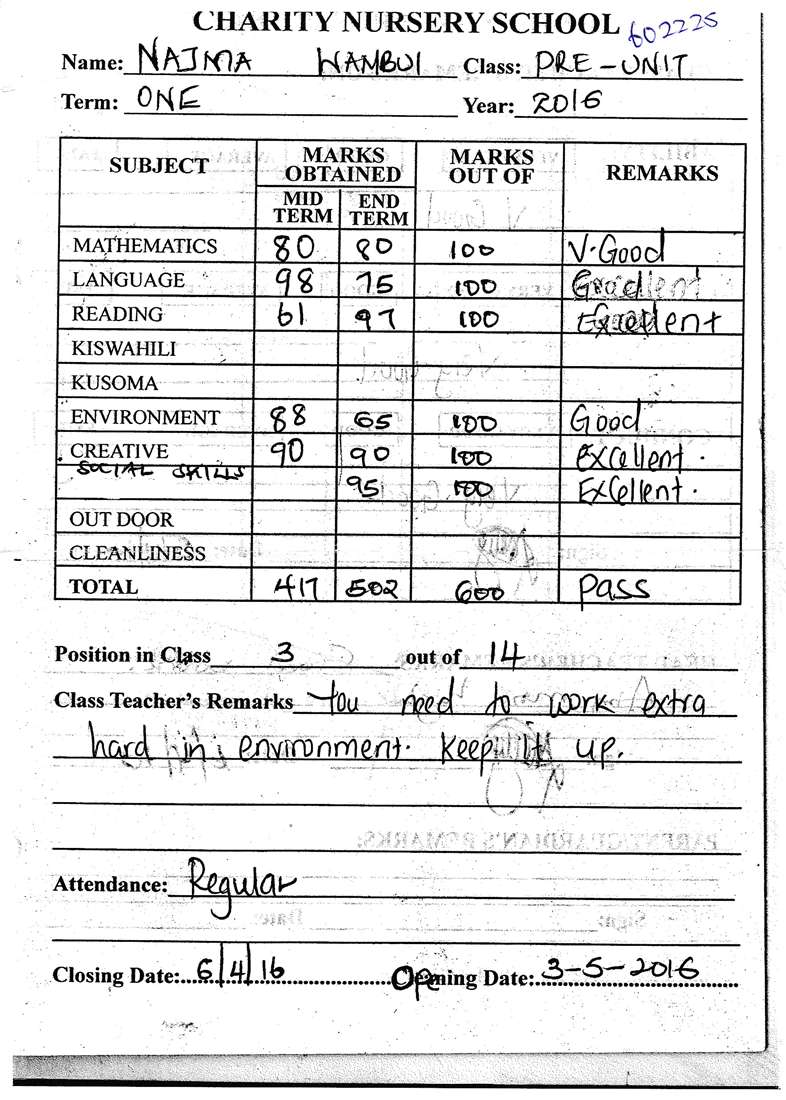 CHARITY NURSERY SCHOOL 602225
Name: NAJMA WAMBUI Class: PRE-UNIT
Term: ONE Year: 2016
SUBJECT MARKS OBTAINED MARKS OUT OF REMARKS
MID TERM END TERM
MATHEMATICS 80 80 100 V.Good
LANGUAGE 98 75 100
READING 61 97 100 Excellent
KISWAHILI
KUSOMA
ENVIRONMENT 88 65 100 Good
CREATIVE 90 90 100 Excellent.
SOCIAL SKILLS 95 100 Excellent.
OUT DOOR
CLEANLINESS
TOTAL 417 502 600 pass
Position in Class 3 out of 14
Class Teacher's Remarks You need to work extra
hard in environment. Keep it up.
PARENT/GUARDIAN'S REMARKS:
Attendance: Regular
Sign: Date:
Closing Date: 6/4/16 Opening Date: 3-5-2016